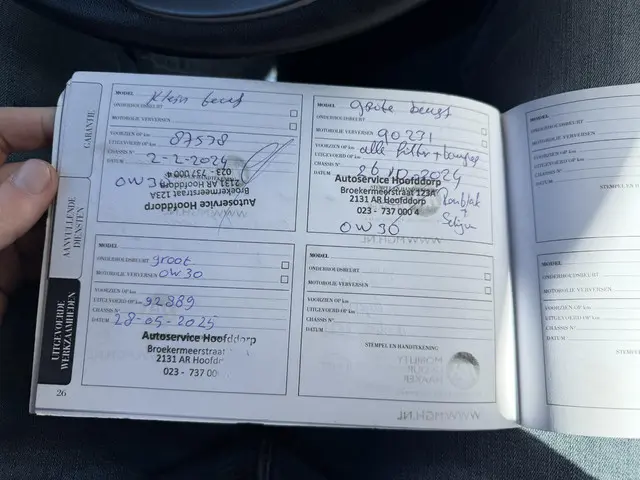 GARANTIE
AANVULLENDE DIENSTEN
UITGEVOERDE WERKZAAMHEDEN
MODEL Klein beurt
ONDERHOUDSBEURT
MOTOROLIE VERVERSEN
VOORZIEN OP km
UITGEVOERD OP km 87578
CHASSIS Nº
DATUM 2-2-2024
OW30
Autoservice Hoofddorp
Broekermeerstraat 123A
2131 AR Hoofddorp
023 - 737 000 4
MODEL grote beurt
ONDERHOUDSBEURT
MOTOROLIE VERVERSEN 90271
VOORZIEN OP km alle filters +
UITGEVOERD OP km
CHASSIS Nº
DATUM 26 10 2024
Autoservice Hoofddorp
Broekermeerstraat 123A
2131 AR Hoofddorp
023 - 737 000 4
OW30
WWW.MGH.NL
MODEL
ONDERHOUDSBEURT groot
MOTOROLIE VERVERSEN OW30
VOORZIEN OP km
UITGEVOERD OP km 92889
CHASSIS Nº
DATUM 28-05-2025
Autoservice Hoofddorp
Broekermeerstraat
2131 AR Hoofddo
023 - 737 00
MODEL
ONDERHOUDSBEURT
MOTOROLIE VERVERSEN
VOORZIEN OP km
UITGEVOERD OP km
CHASSIS Nº
DATUM
STEMPEL EN HANDTEKENING
WWW.MGH.NL
26
MODEL
ONDERHOUDSBEURT
MOTOROLIE VERVERSEN
VOORZIEN OP km
UITGEVOERD OP km
CHASSIS Nº
DATUM
STEMPEL EN H
MODEL
ONDERHOUDSBEURT
MOTOROLIE VERVERSEN
VOORZIEN OP km
UITGEVOERD OP km
CHASSIS Nº
DATUM
STEMPEL EN